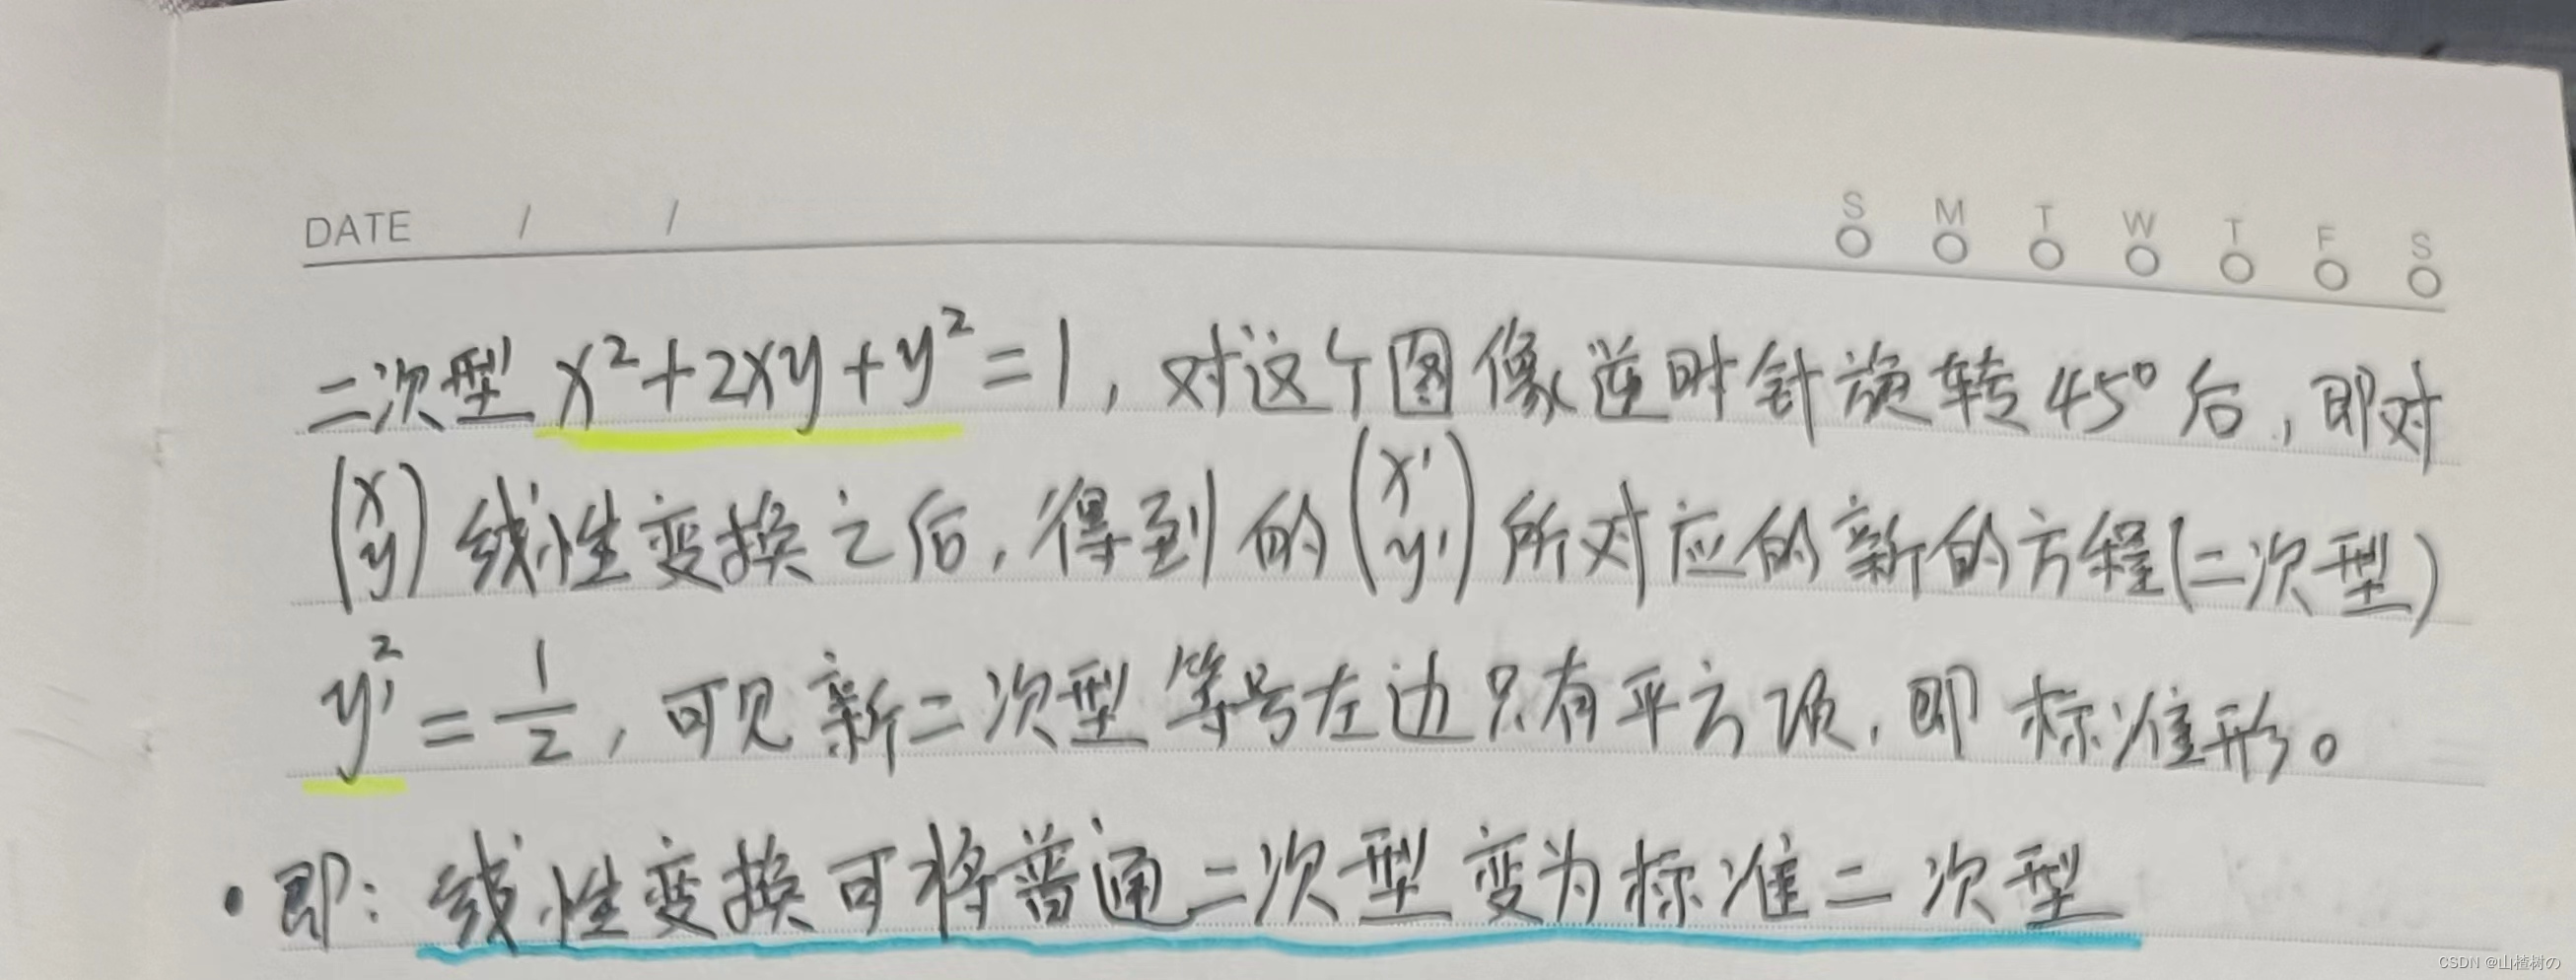 DATE / / S M T W T F S
二次型 x²+2xy+y²=1, 对这个图像逆时针旋转45°后, 即对
(x y) 线性变换之后, 得到的 (x' y') 所对应的新的方程(二次型)
y'²=1/2, 可见新二次型等号左边只有平方项, 即标准形。
·即: 线性变换可将普通二次型变为标准二次型
CSDN @山楂树の